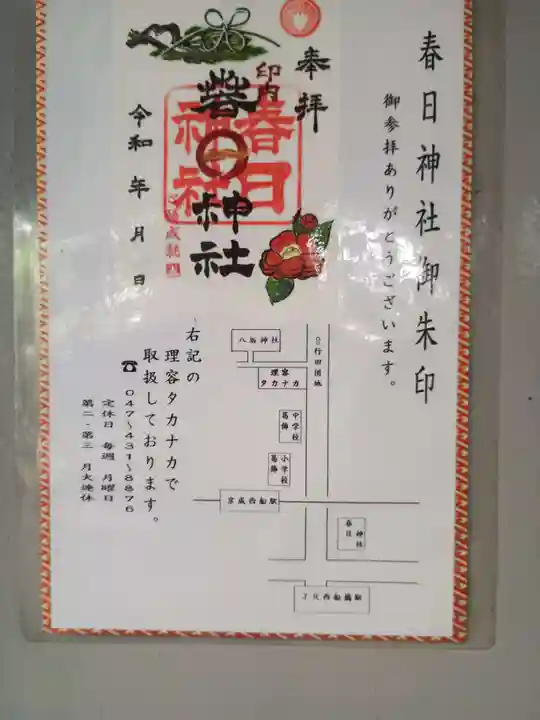 春日神社御朱印
御参拝ありがとうございます。
奉拝
印内
春日
神社
神社
令和 年 月 日
右記の
理容タカナカで
取扱しております。
☎047〜431〜8876
定休日 毎週 月曜日
第二・第三 月火連休
八坂神社
行田団地
理容
タカナカ
葛飾
中学校
葛飾
小学校
京成西船駅
春日
神社
JR西船橋駅